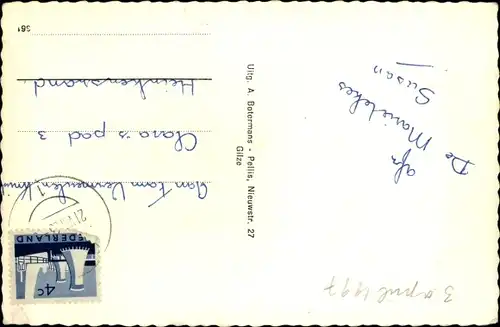 De Marielekes
afz
Susan
Uitg. A. Botermans - Pellis, Nieuwstr. 27
Gilze
Aan Fam
Clara's pad 3
Heinkenszand
561
NEDERLAND
4c
3 april 1997